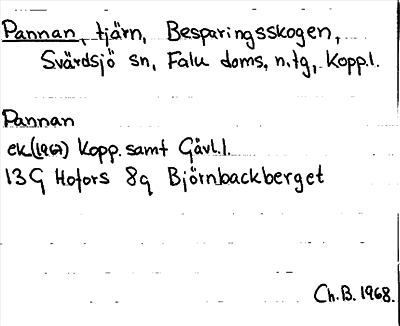 Pannan, tjärn, Besparingsskogen,
Svärdsjö sn, Falu doms, n.tg, Kopp.l.
Pannan
ek(1967) Kopp. samt Gävl.l.
13G Hofors 8q Björnbackberget
Ch.B. 1968.